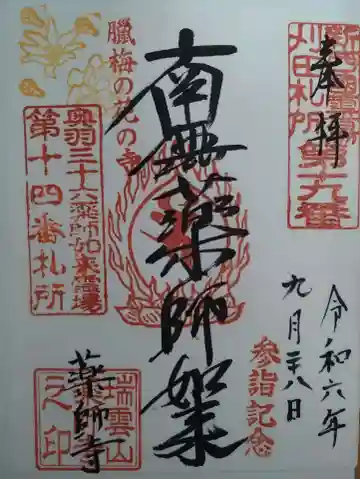 奉拝
刈田札所第十六番
令和六年
九月二十八日
参詣記念
南無薬師如来
臘梅の花の寺
奥羽三十六薬師如来霊場
第十四番札所
薬師寺
瑞雲山
之印